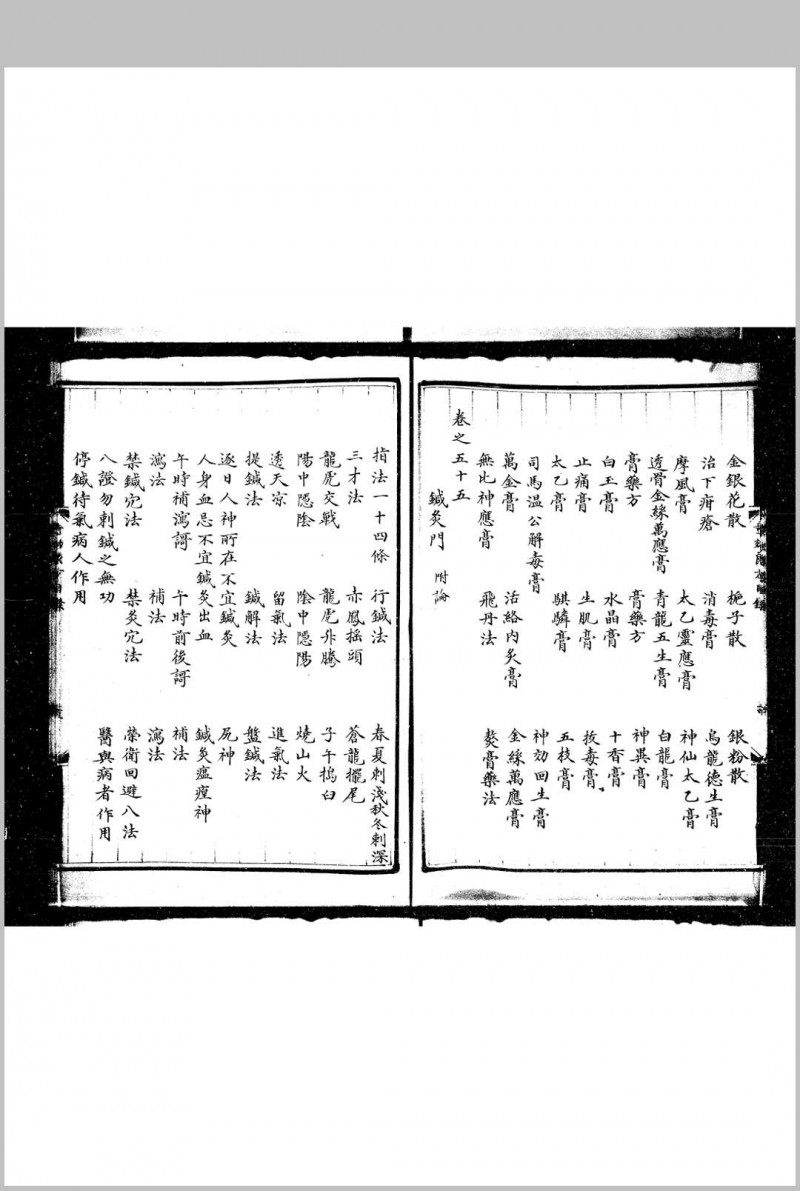 金銀花散 梔子散 銀粉散
治下疳瘡 消毒膏 烏龍德生膏
摩風膏 太乙靈應膏 神仙太乙膏
透骨金絲萬應膏 青龍五生膏 白龍膏
膏藥方 膏藥方 神異膏
白玉膏 水晶膏 十香膏
止痛膏 生肌膏 拔毒膏
太乙膏 騏驎膏 五枝膏
司馬溫公解毒膏 神効回生膏
萬金膏 活絡內炙膏 金絲萬應膏
無比神應膏 飛丹法 熬膏藥法
卷之五十五
鍼灸門 附論
指法一十四條 行鍼法 春夏刺淺秋冬刺深
三才法 赤鳳搖頭 蒼龍擺尾
龍虎交戰 龍虎升騰 子午搗臼
陽中隱陰 陰中隱陽 燒山火
透天凉 留氣法 進氣法
提鍼法 鍼解法 盤鍼法
逐日人神所在不宜鍼灸 尻神
人身血忌不宜鍼灸出血 鍼灸瘟㾏神
午時補瀉訶 午時前後訶 補法
瀉法 補法 瀉法
禁鍼宂法 禁灸宂法 榮衛回避八法
八證勿刺鍼之無功
停鍼待氣病人作用 醫與病者作用